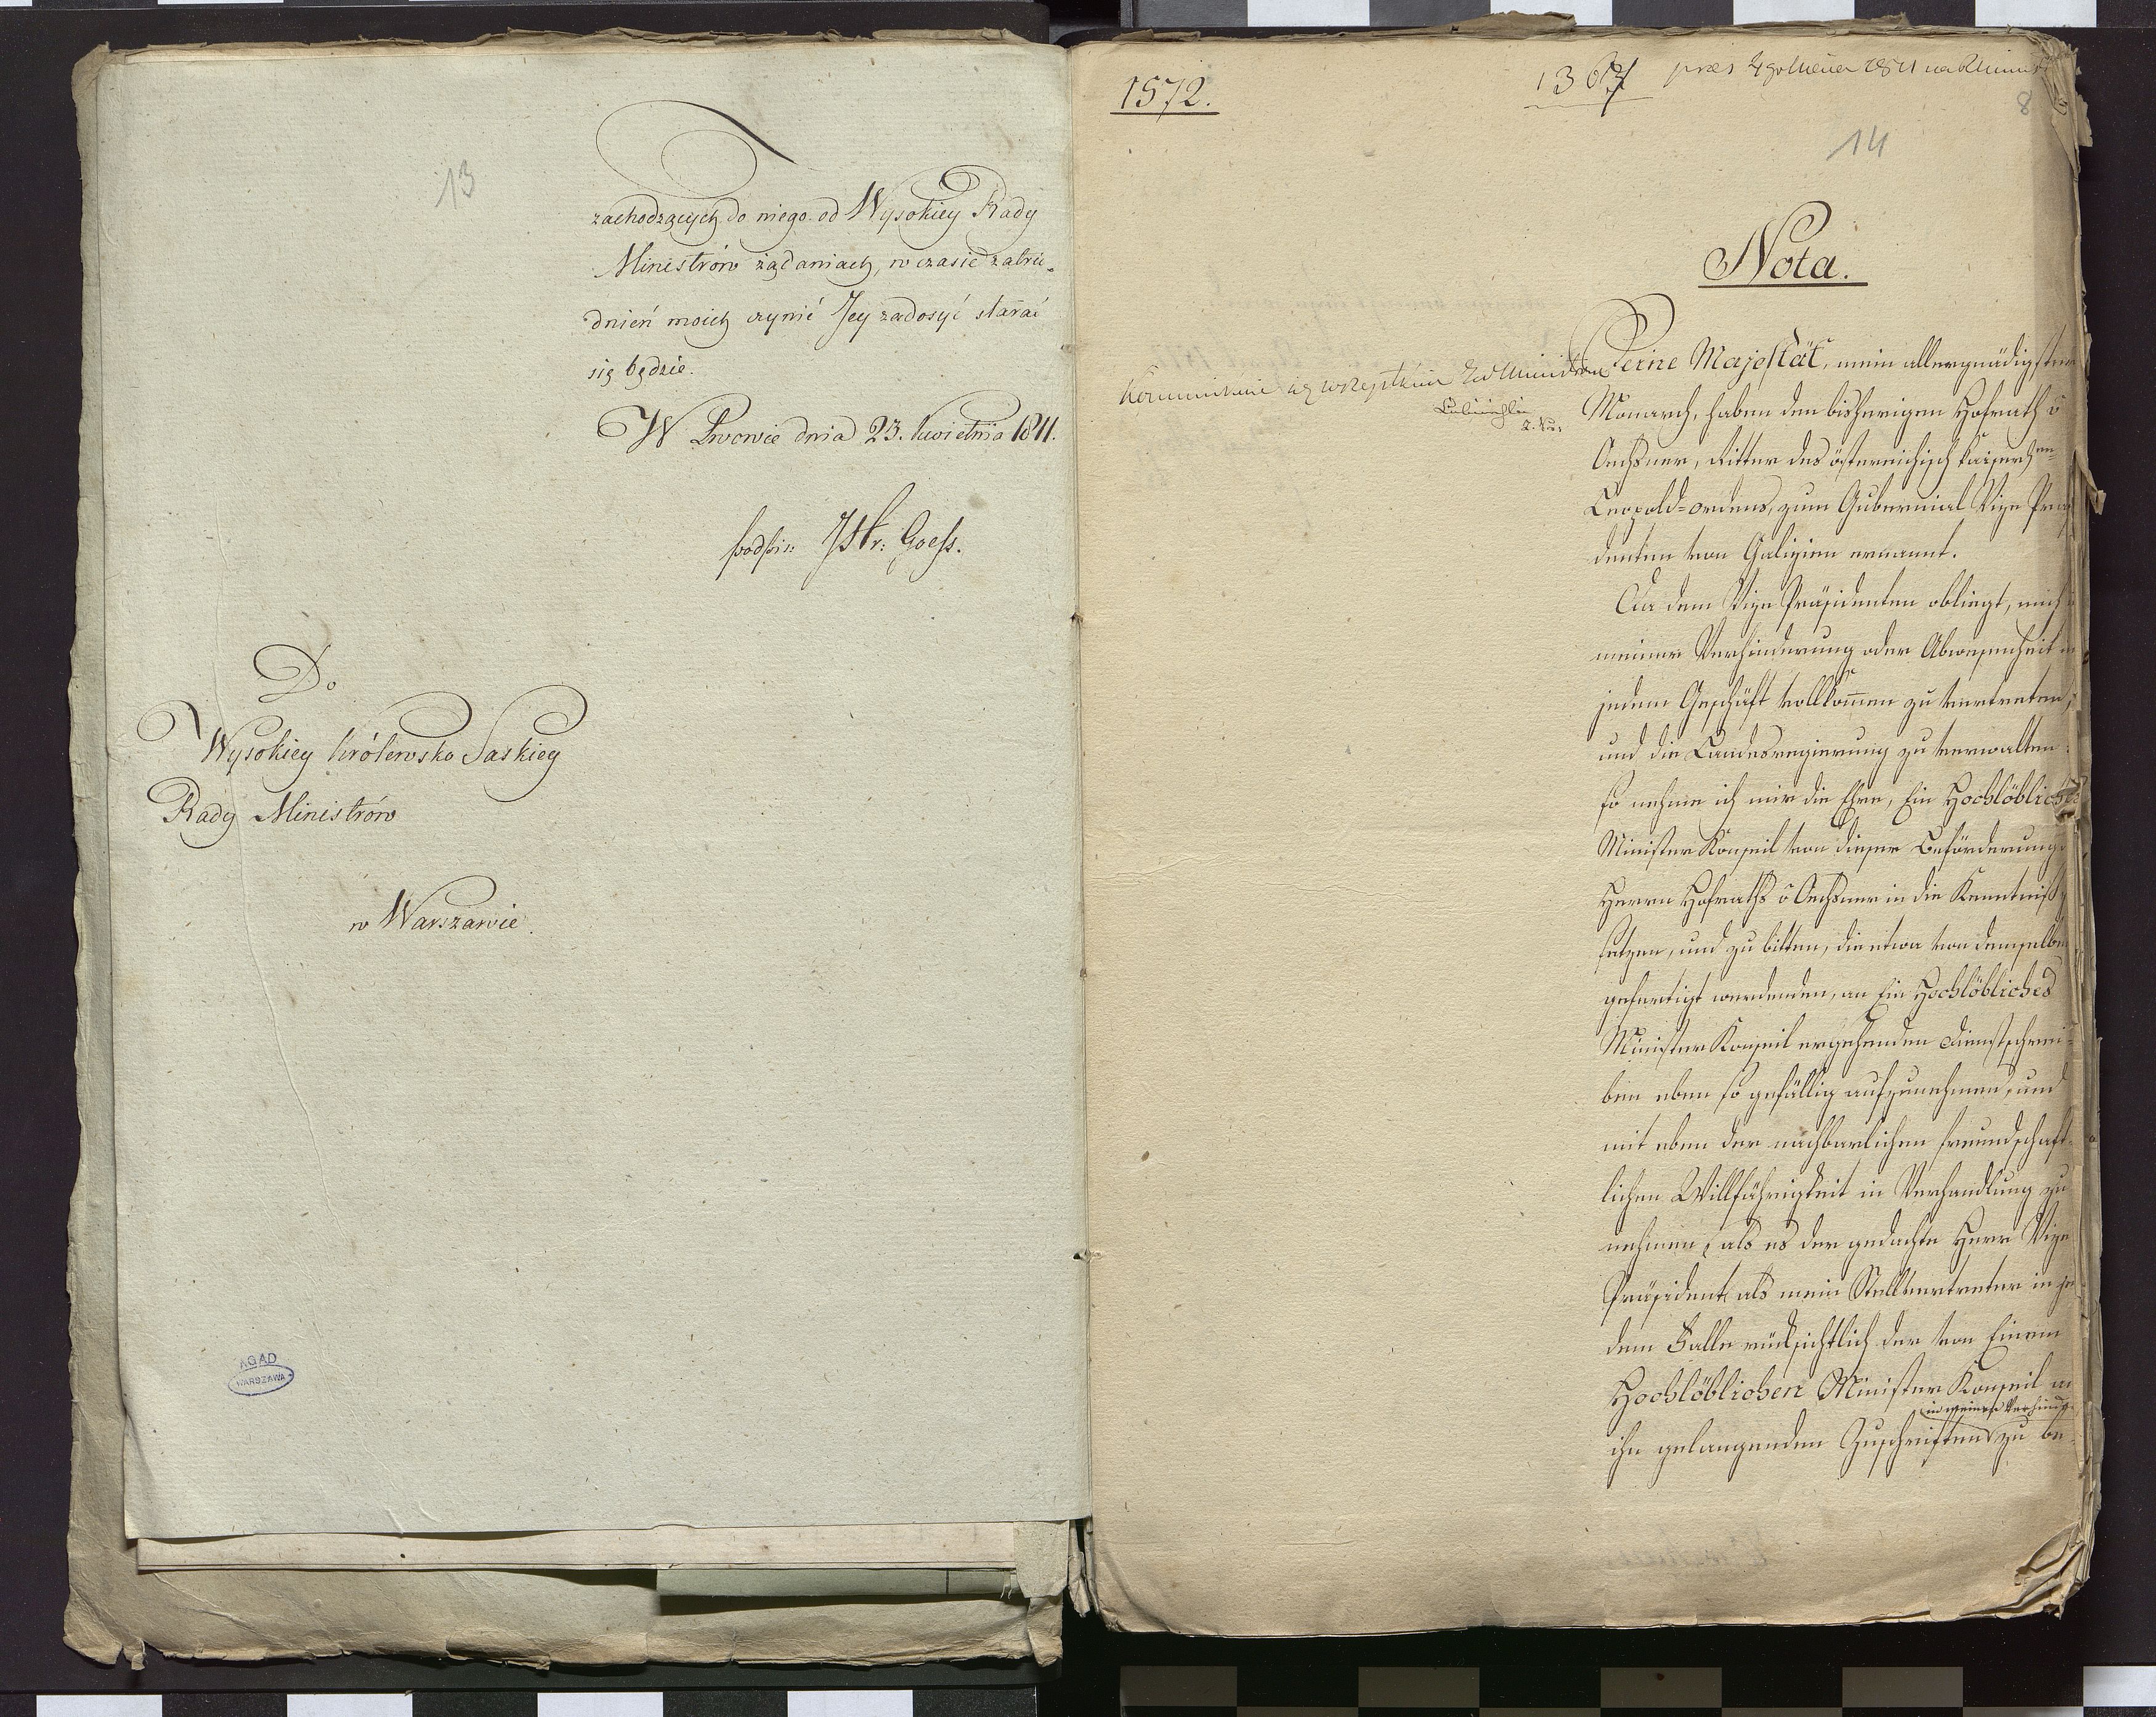 13
zachodzących do niego od Wysokiey Rady
Ministrów żądaniach, w czasie zatru-
dnień moich czynić Jey zadosyć starać
się będzie.
W Lwowie dnia 23. kwietnia 1811.
podpis: Goeſs.
Do
Wysokiey Królewsko Saskiey
Rady Ministrów
w Warszawie.
AGAD
WARSZAWA
1572.
1367
8
14
Nota.
Seine Majestät, mein allergnädigster
Monarch, haben den bisherigen Hofrath v
Oechsner, Ritter des östereichisch kaiserlen-
Leopold-ordens, zum Gubernial Vize Präsi
denten von Galizien ernannt.
Da dem Vize Präsidenten obliegt, mich
meiner Verhinderung oder Abwesenheit
jedem Geschäft vollkom̅en zu vertreten,
und die Landesregierung zu verwalten:
so nehme ich mir die Ehre, Ein Hochlöbliches
Minister Konseil von dieser Beförderung
Herrn Hofraths v Oechsner in die Kenntniß
setzen, und zu bitten, die etwa von demselben
gefertigt werdenden, an Ein Hochlöbliches
Minister Konseil ergehenden Dienstschrei-
ben eben so gefällig aufzunehmen, und
mit eben der nachbarlichen freundschaft-
lichen Willfährigkeit in Verhandlung zu
nehmen, als es der gedachte Herr Vize
Präsident als mein Stellvertreter in je
dem Falle rücksichtlich der von Einem
Hochlöblichen Minister Konseil an
in meiner Verhind
ihn gelangenden Zuschriften zu be